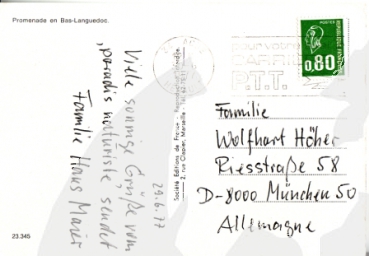 Promenade en Bas-Languedoc.
Viele sonnige Grüße vom
"paradis naturiste" sendet
Familie Hans Maier
29.6.77
Société Editions de France - Reproduction interdite
2, rue Clapier, Marseille -
pour votre
CARRIERE
P.T.T.
POSTES
0,80
Familie
Wolfhart Höher
Riesstraße 58
D-8000 München 50
Allemagne
23.345